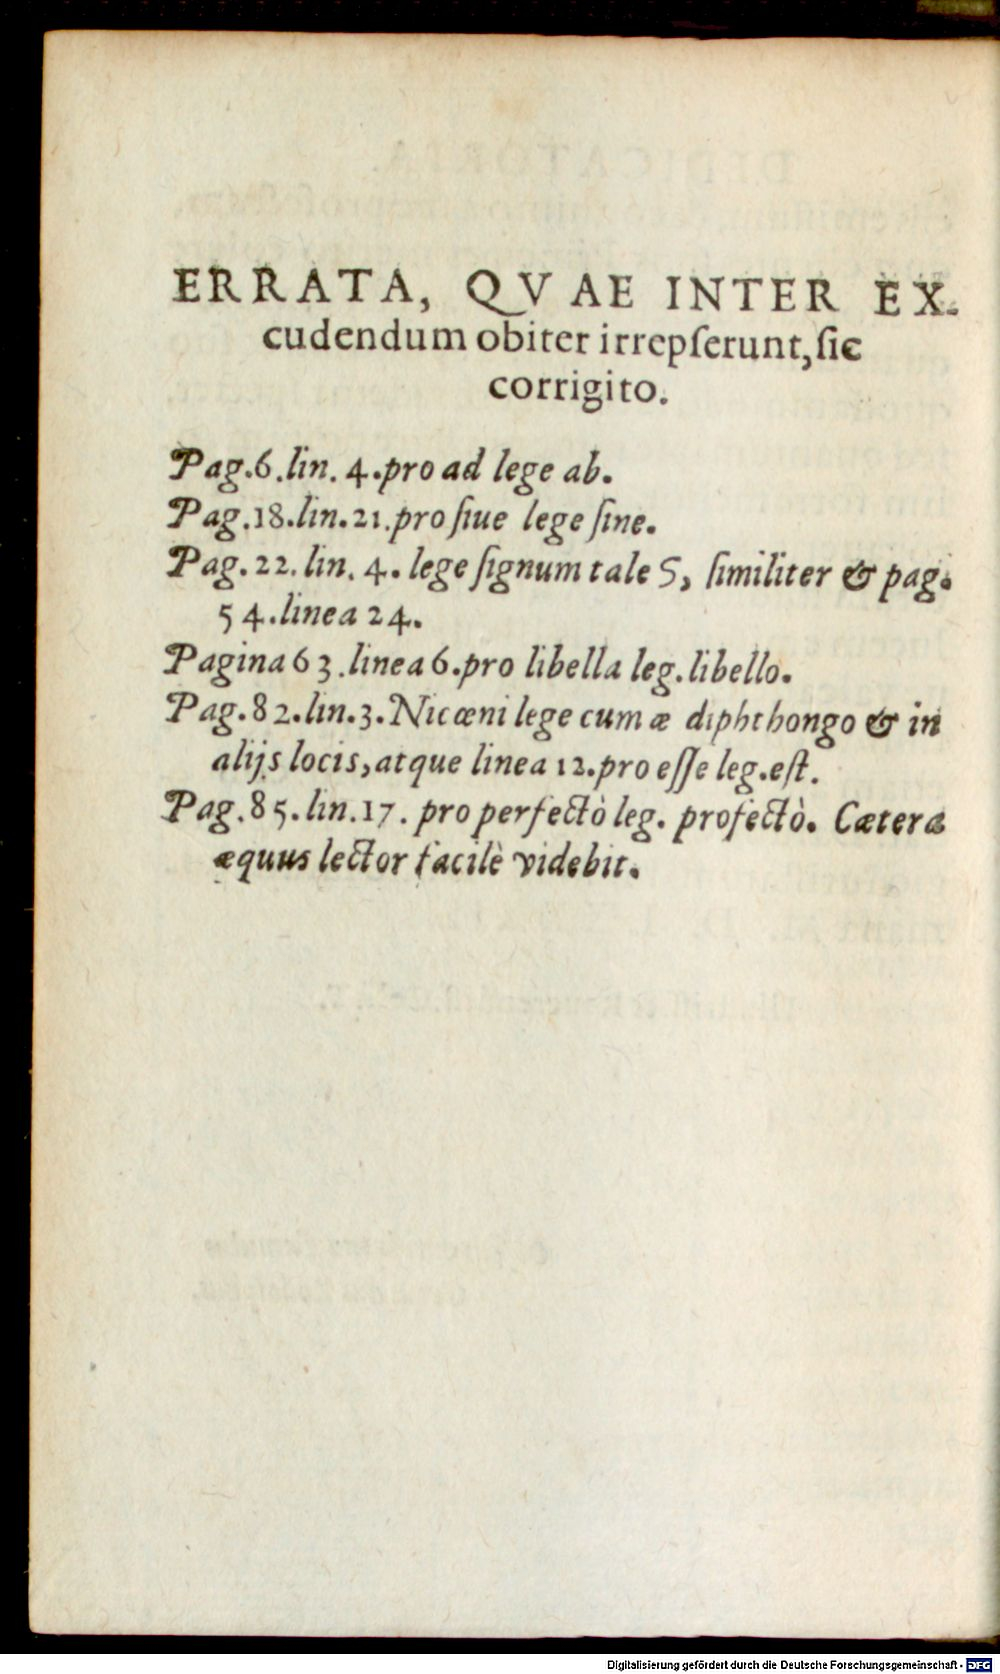 ERRATA, QVAE INTER EX-
cudendum obiter irrepſerunt, ſic
corrigito.
Pag. 6. lin. 4. pro ad lege ab.
Pag. 18. lin. 21. pro ſiue lege ſine.
Pag. 22. lin. 4. lege ſignum tale S, ſimiliter & pag.
54. linea 24.
Pagina 63. linea 6. pro libella leg. libello.
Pag. 82. lin. 3. Nicœni lege cum æ diphthongo & in
alijs locis, atque linea 12. pro eſſe leg. eſt.
Pag. 85. lin. 17. pro perfectò leg. profectò. Cætera
æquus lector facilè videbit.
Digitalisierung gefördert durch die Deutsche Forschungsgemeinschaft - DFG